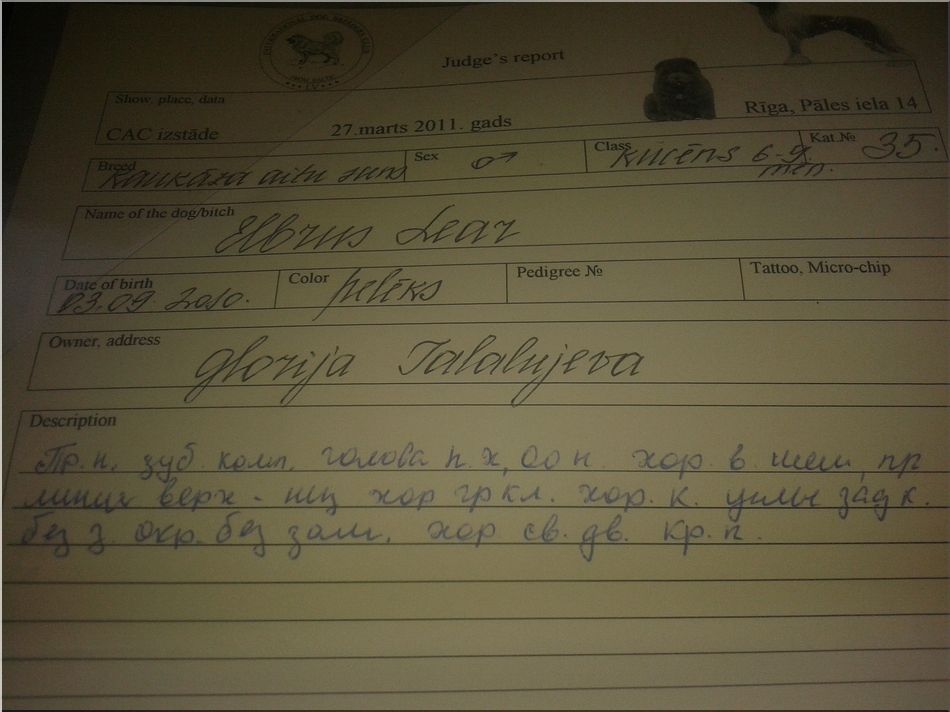 INTERNATIONAL DOG BREEDERS CLUB
Judge's report
Show, place, data
CAC izstāde 27.marts 2011. gads Rīga, Pāles iela 14
Breed Kaukāza aitu suns Sex ♂ Class kucēns 6-9 mēn. Kat.№ 35.
Name of the dog/bitch
Elbrus Lear
Date of birth 03.09 2010. Color pelēks Pedigree № Tattoo, Micro-chip
Owner, address
Glorija Talalujeva
Description
Пр.п. зуб. комп. голова п.х, Оо н. хор. в. шеи, пр
линия верх - низ хор гр кл. хор. к. углы зад к.
без з. окр. без зам. хор св. дв. Кр. п.